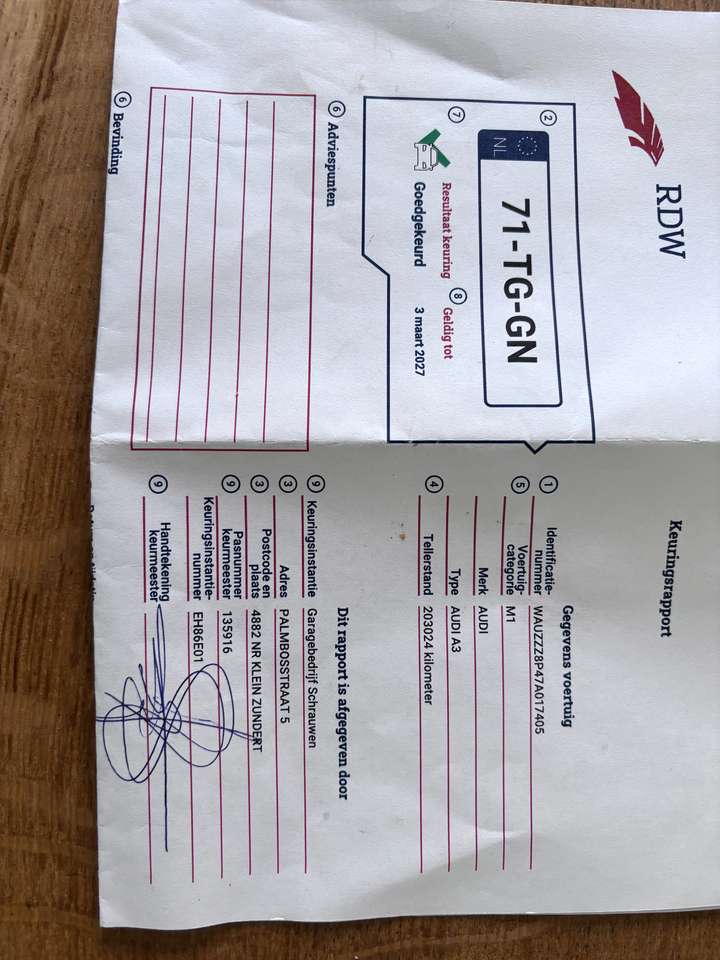 RDW
Keuringsrapport
2
NL
71-TG-GN
7 Resultaat keuring
Goedgekeurd
8 Geldig tot
3 maart 2027
6 Adviespunten
6 Bevinding
Gegevens voertuig
1 Identificatie-
nummer WAUZZZ8P47A017405
5 Voertuig-
categorie M1
Merk AUDI
Type AUDI A3
4 Tellerstand 203024 kilometer
Dit rapport is afgegeven door
9 Keuringsinstantie Garagebedrijf Schrauwen
3 Adres PALMBOSSTRAAT 5
3 Postcode en
plaats 4882 NR KLEIN ZUNDERT
9 Pasnummer
keurmeester 135916
Keuringsinstantie-
nummer EH86E01
9 Handtekening
keurmeester